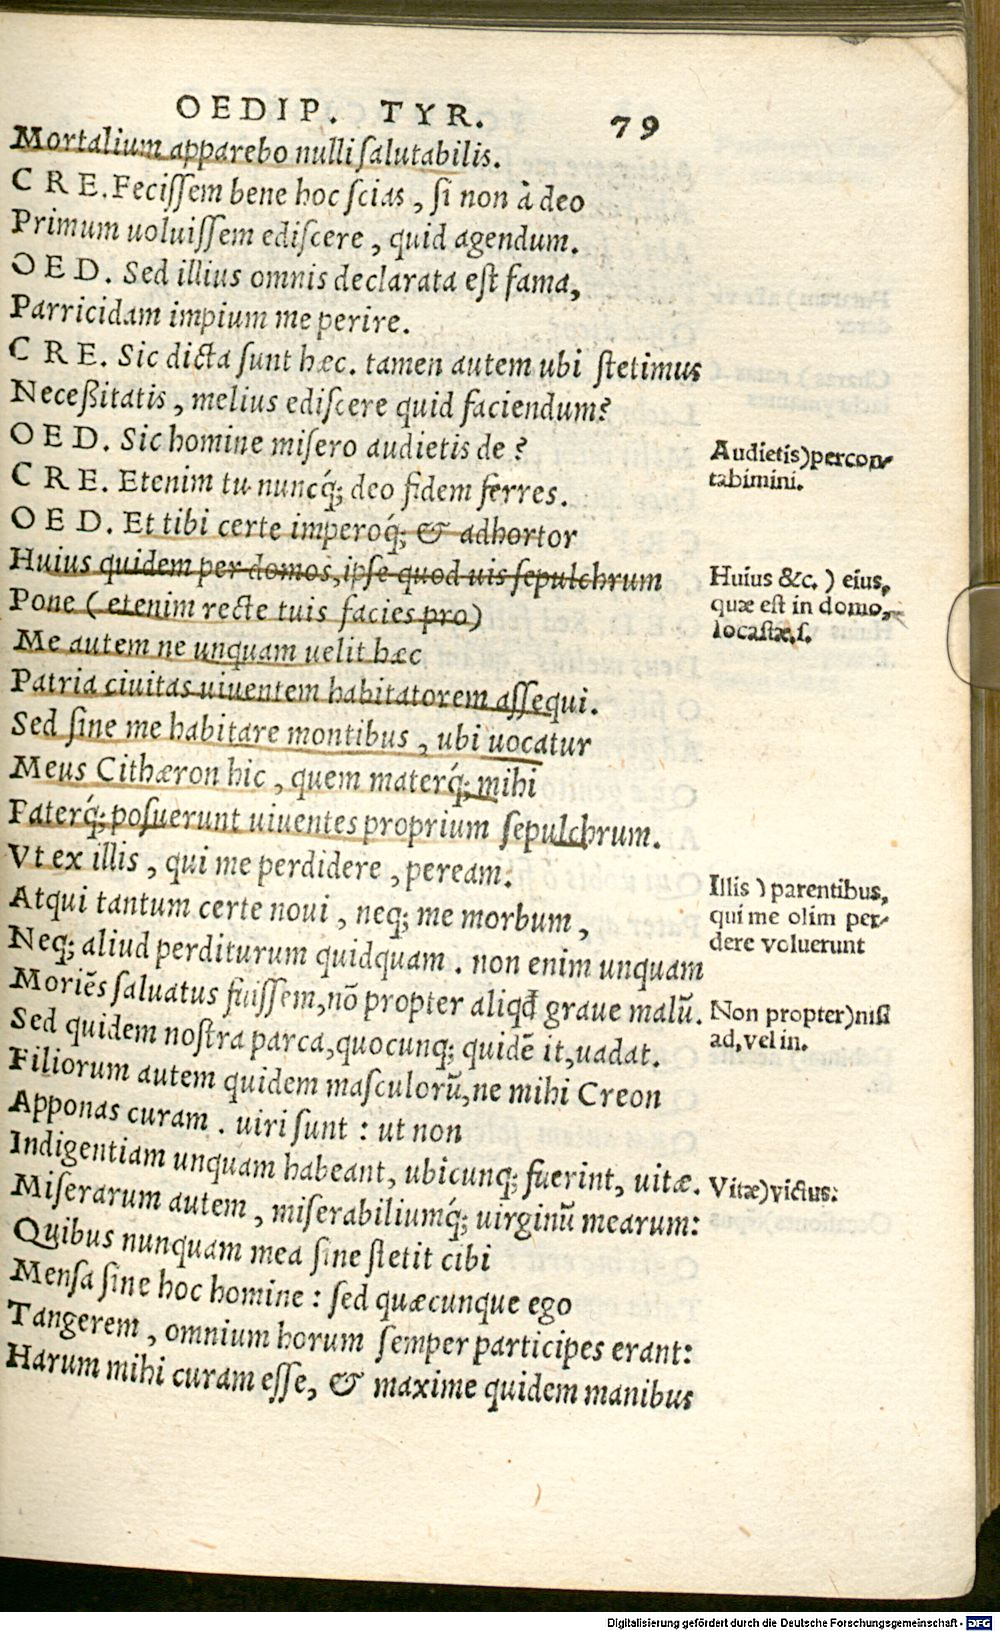 OEDIP. TYR. 79
Mortalium apparebo nulli ſalutabilis.
CRE. Feciſſem bene hoc ſcias, ſi non à deo
Primum uoluiſſem ediſcere, quid agendum.
OED. Sed illius omnis declarata eſt fama,
Parricidam impium me perire.
CRE. Sic dicta ſunt hæc. tamen autem ubi ſtetimus
Neceßitatis, melius ediſcere quid faciendum?
OED. Sic homine miſero audietis de?
CRE. Etenim tu nuncq́; deo fidem ferres.
OED. Et tibi certe imperoq́; & adhortor
Huius quidem per domos, ipſe quod uis ſepulchrum
Pone (etenim recte tuis facies pro)
Me autem ne unquam uelit hæc
Patria ciuitas uiuentem habitatorem aſſequi.
Sed ſine me habitare montibus, ubi uocatur
Meus Cithæron hic, quem materq́; mihi
Paterq́; poſuerunt uiuentes proprium ſepulchrum.
Vt ex illis, qui me perdidere, peream.
Atqui tantum certe noui, neq; me morbum,
Neq; aliud perditurum quidquam. non enim unquam
Moriẽs ſaluatus fuiſſem, nõ propter aliqđ graue malũ.
Sed quidem noſtra parca, quocunq; quidẽ it, uadat.
Filiorum autem quidem maſculorũ, ne mihi Creon
Apponas curam. uiri ſunt: ut non
Indigentiam unquam habeant, ubicunq; fuerint, uitæ.
Miſerarum autem, miſerabiliumq́; uirginũ mearum:
Quibus nunquam mea ſine ſtetit cibi
Menſa ſine hoc homine: ſed quæcunque ego
Tangerem, omnium horum ſemper participes erant:
Harum mihi curam eſſe, & maxime quidem manibus
Audietis) percon-
tabimini.
Huius &c.) eius,
quæ eſt in domo,
Iocaſtæ.ſ.
Illis) parentibus,
qui me olim per-
dere voluerunt
Non propter) niſi
ad, vel in.
Vitæ) victus:
Digitalisierung gefördert durch die Deutsche Forschungsgemeinschaft - DFG